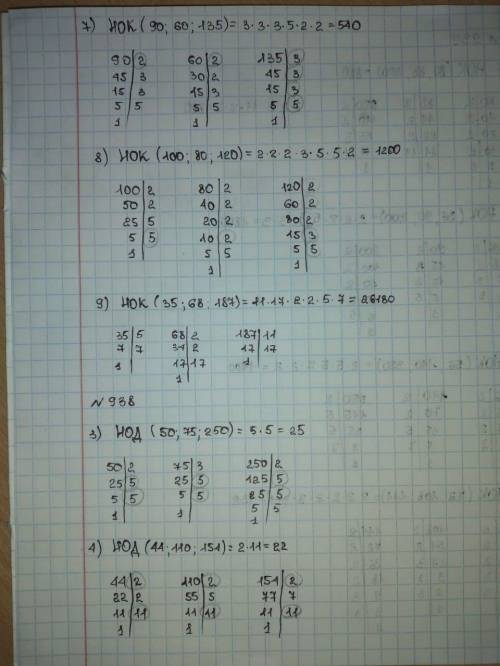 7) НОК (90; 60; 135) = 3·3·3·5·2·2 = 540
90|2 60|2 135|3
45|3 30|2 45|3
15|3 15|3 15|3
5|5 5|5 5|5
1 1 1
8) НОК (100; 80; 120) = 2·2·2·3·5·5·2 = 1200
100|2 80|2 120|2
50|2 40|2 60|2
25|5 20|2 30|2
5|5 10|2 15|3
1 5|5 5|5
1 1
9) НОК (35; 68; 187) = 11·17·2·2·5·7 = 26180
35|5 68|2 187|11
7|7 34|2 17|17
1 17|17 1
1
№938
3) НОД (50; 75; 250) = 5·5 = 25
50|2 75|3 250|2
25|5 25|5 125|5
5|5 5|5 25|5
1 1 5|5
1
4) НОД (44; 110; 154) = 2·11 = 22
44|2 110|2 154|2
22|2 55|5 77|7
11|11 11|11 11|11
1 1 1